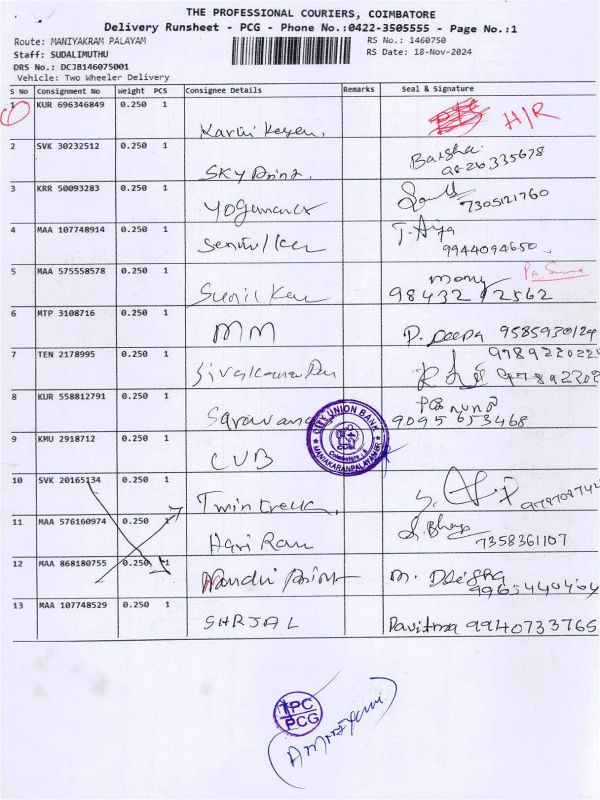 THE PROFESSIONAL COURIERS, COIMBATORE
Delivery Runsheet - PCG - Phone No.:0422-3505555 - Page No.:1
Route: MANIYAKRAM PALAYAM RS No.: 1460750
Staff: SUDALIMUTHU RS Date: 18-Nov-2024
DRS No.: DCJB146075001
Vehicle: Two Wheeler Delivery
S No Consignment No Weight PCS Consignee Details Remarks Seal & Signature
1 KUR 696346849 0.250 1 H/R
2 SVK 30232512 0.250 1 SKY Point. Barsha
3 KRR 50093283 0.250 1 7305121760
4 MAA 107748914 0.250 1 9944094650
5 MAA 575558578 0.250 1 Sunil many
98432 12562
6 MTP 3108716 0.250 1 MM D. Deepa
7 TEN 2178995 0.250 1
8 KUR 558812791 0.250 1 Saravana
9095 653468
9 KMU 2918712 0.250 1 CUB
CITY UNION BANK
Coimbatore
MANIAKARANPALAYAM
10 SVK 20165134 0.250 1
11 MAA 576160974 0.250 1 Hari Ram 7358361107
12 MAA 868180755 0.250 1 Nandhi Print
13 MAA 107748529 0.250 1 SHRJAL Pavithra 9940733765
TPC
PCG